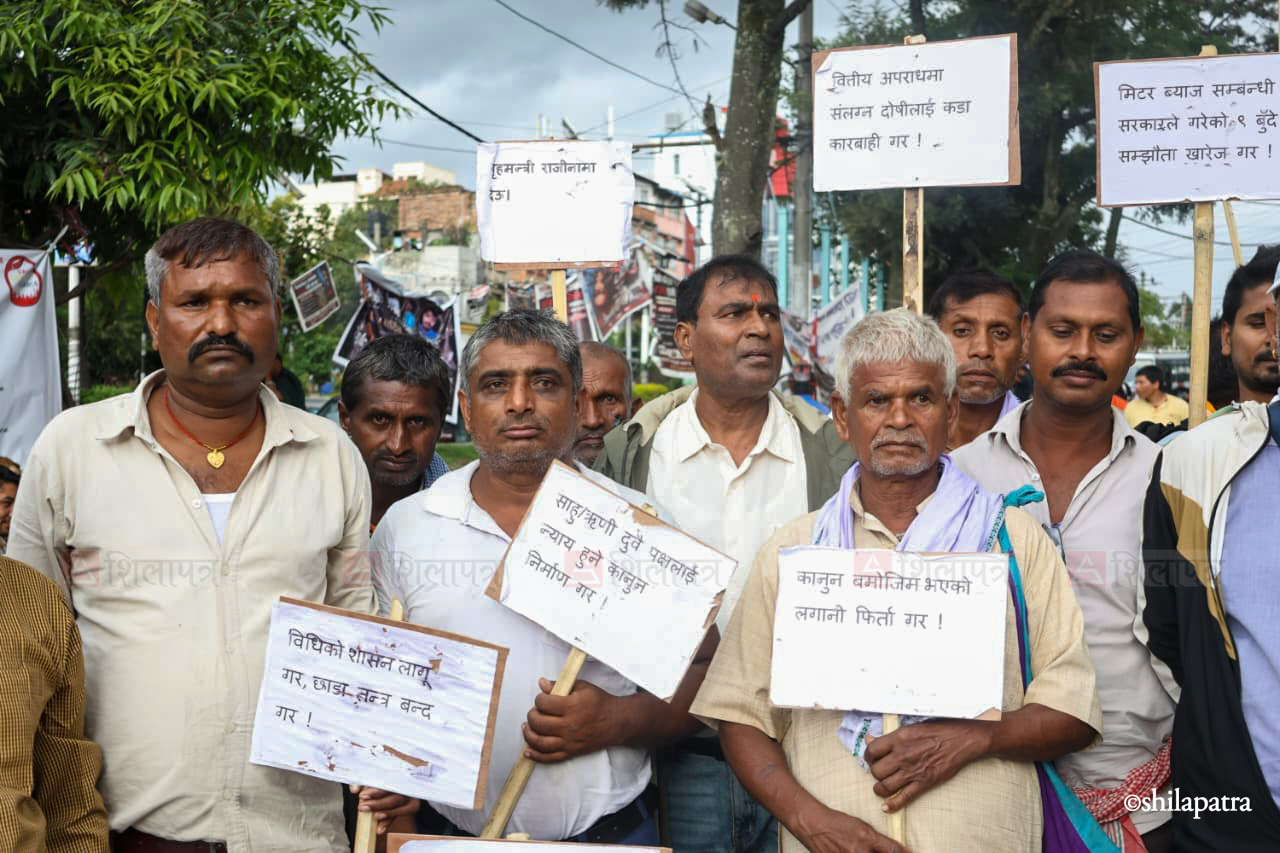 गृहमन्त्री राजीनामा
देऊ।
वित्तीय अपराधमा
संलग्न दोषीलाई कडा
कारबाही गर !
मिटर ब्याज सम्बन्धी
सरकारले गरेको ९ बुँदे
सम्झौता खारेज गर !
साहु/ऋणी दुवै पक्षलाई
न्याय हुने कानुन
निर्माण गर !
कानुन बमोजिम भएको
लगानी फिर्ता गर !
विधिको शासन लागू
गर, छाडा तन्त्र बन्द
गर !
शिलापत्र
शिलापत्र
शिलापत्र
©shilapatra